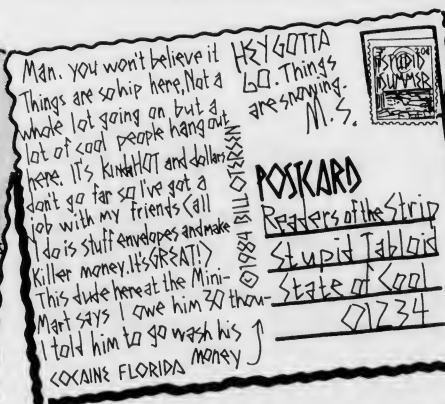 Man. you won't believe it
Things are so hip here, Not a
whole lot going on but a
lot of cool people hang out
here. It's KindaHOT and dollars
dont go far so I've got a
job with my friends (all
I do is stuff envelopes and make
Killer money. It's GREAT!)
This dude here at the Mini-
Mart says I owe him 30 thou-
I told him to go wash his
money
COCAINE FLORIDA
HEY GOTTA
GO. Things
are snowing.
M.S.
©1984 BILL OTERSEN
STUPID
BUMMER
POSTCARD
Readers of the Strip
Stupid Tabloid
State of Cool
01234